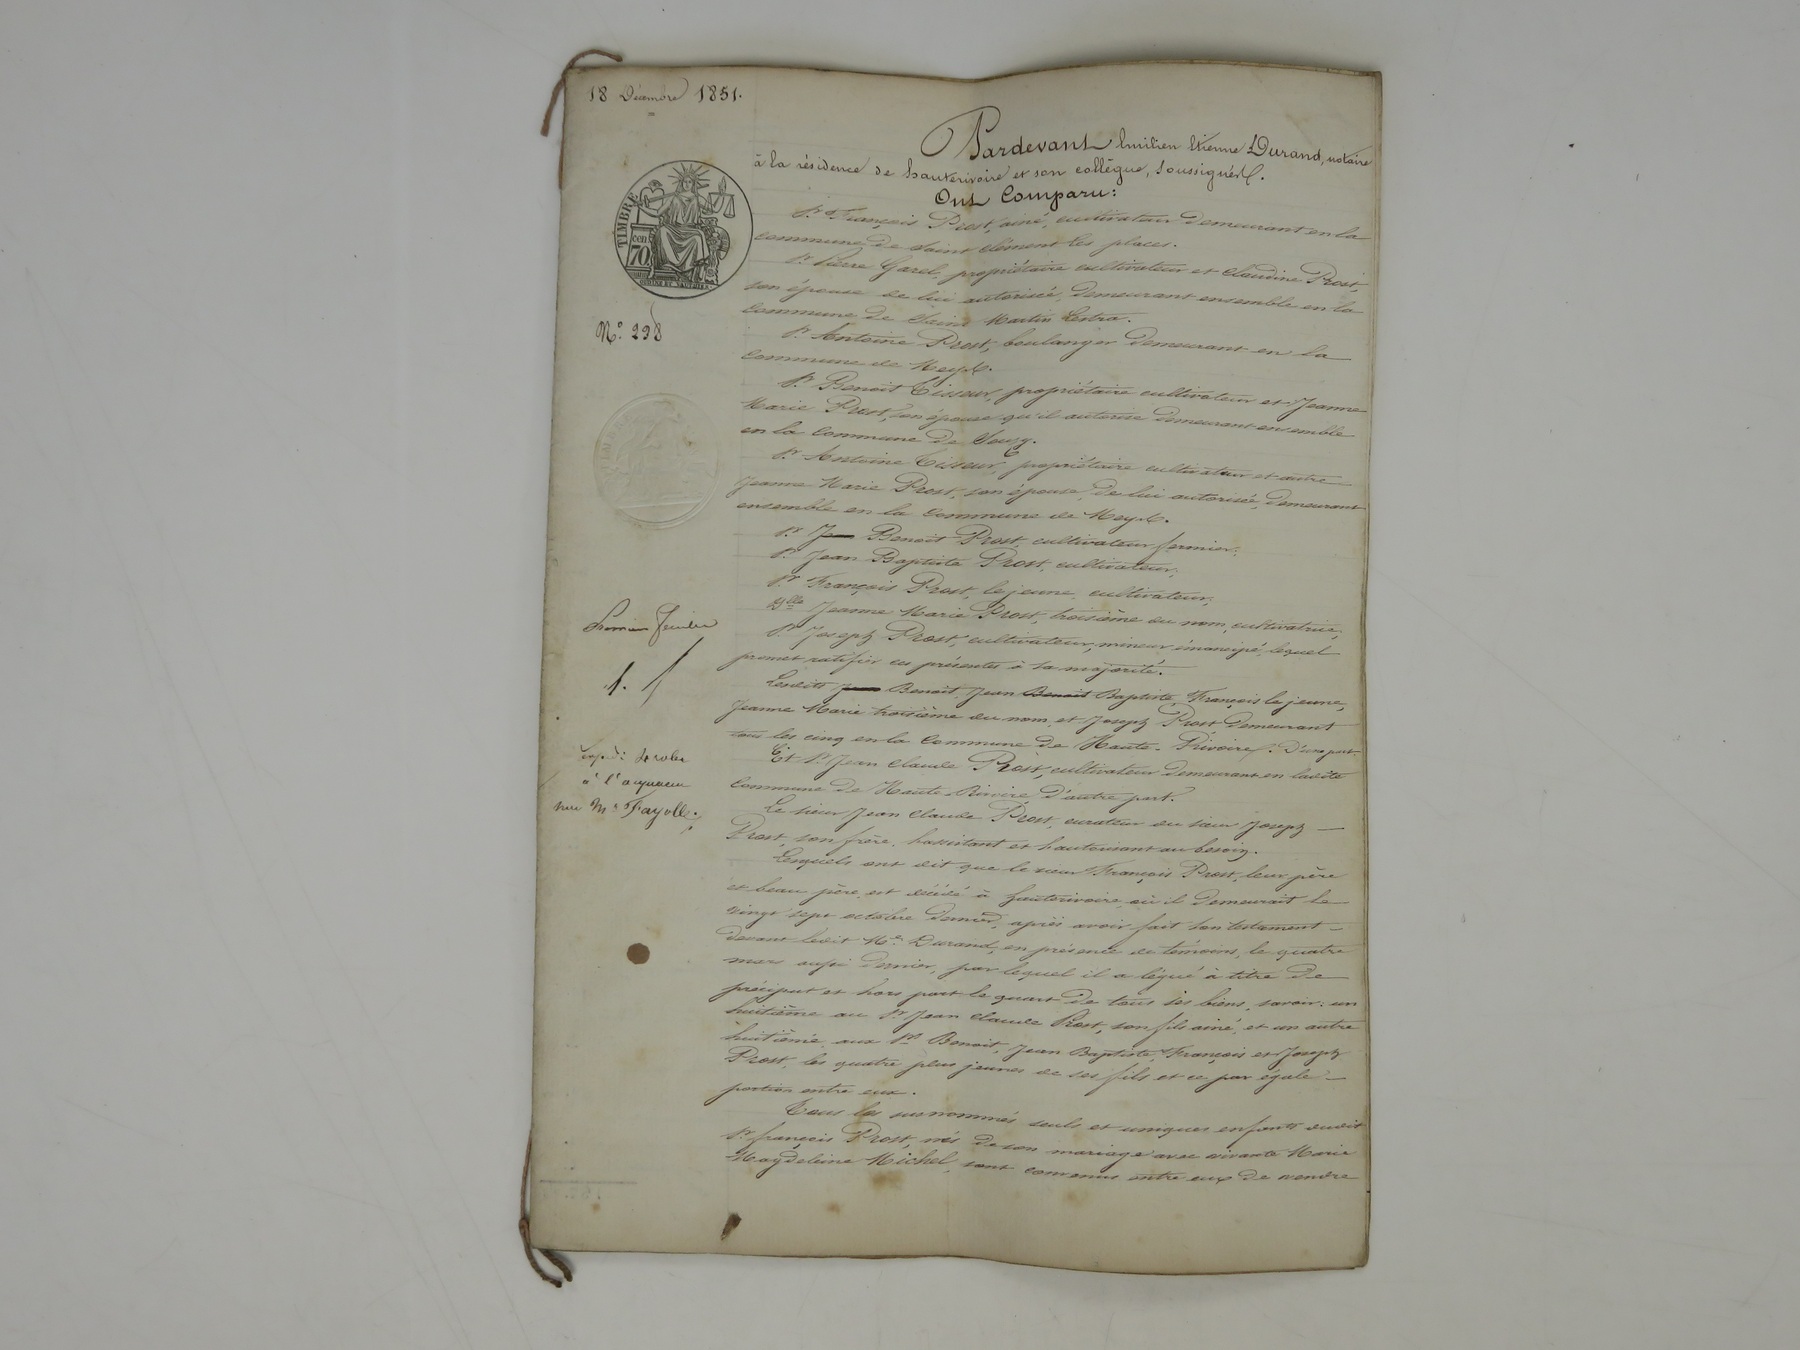 18 Décembre 1851.
Pardevant Emilien Etienne Durand, notaire
à la résidence de hauterivoire et son collègue, soussignés.
Ont Comparu:
TIMBRE
cen
70
Sr. François Prost, ainé, cultivateur demeurant en la
commune de Saint Clément les places.
Sr. Pierre Garel, propriétaire cultivateur et Claudine Prost,
son épouse de lui autorisée, demeurant ensemble en la
commune de Saint Martin Lestra.
N° 298
Sr. Antoine Prost, boulanger demeurant en la
Commune de Meys.
Sr. Benoit Tisseur, propriétaire cultivateur et Jeanne
Marie Prost, son épouse qu'il autorise demeurant ensemble
en la Commune de Souzy.
Sr. Antoine Tisseur, propriétaire cultivateur et autre
Jeanne Marie Prost, son épouse, de lui autorisée, demeurant
ensemble en la Commune de Meys.
Sr. Benoit Prost, cultivateur fermier;
Sr. Jean Baptiste Prost, cultivateur;
Sr. François Prost, le jeune, cultivateur;
Dlle Jeanne Marie Prost, troisième du nom, cultivatrice;
Sr. Joseph Prost, cultivateur, mineur émancipé, lequel
promet ratifier ces présentes à sa majorité.
1.
Lesdits Benoit, Jean Benoit Baptiste, François le jeune,
Jeanne Marie troisième du nom, et Joseph Prost demeurant
tous les cinq en la Commune de Haute-Rivoire. D'une part
Et Sr. Jean Claude Prost, cultivateur demeurant en ladite
Commune de Haute-Rivoire d'autre part.
à l'acquéreur
Me Fayolle.
Le sieur Jean Claude Prost, curateur du sieur Joseph
Prost, son frère, l'assistant et l'autorisant au besoin.
Lesquels ont dit que le sieur François Prost, leur père
et beau père, est décédé à hauterivoire, où il demeurait le
vingt sept octobre dernier, après avoir fait son testament
devant ledit Me. Durand, en présence de témoins, le quatre
mars aussi dernier, par lequel il a légué à titre de
préciput et hors part le quart de tous ses biens, savoir: un
huitième au Sr. Jean Claude Prost, son fils ainé, et un autre
huitième aux Srs Benoit, Jean Baptiste, François et Joseph
Prost, les quatre plus jeunes de ses fils et ce par égale
portion entre eux.
Tous les susnommés seuls et uniques enfants dudit
Sr. françois Prost, nés de son mariage avec vivante Marie
Magdeleine Michel, sont convenus entre eux de vendre